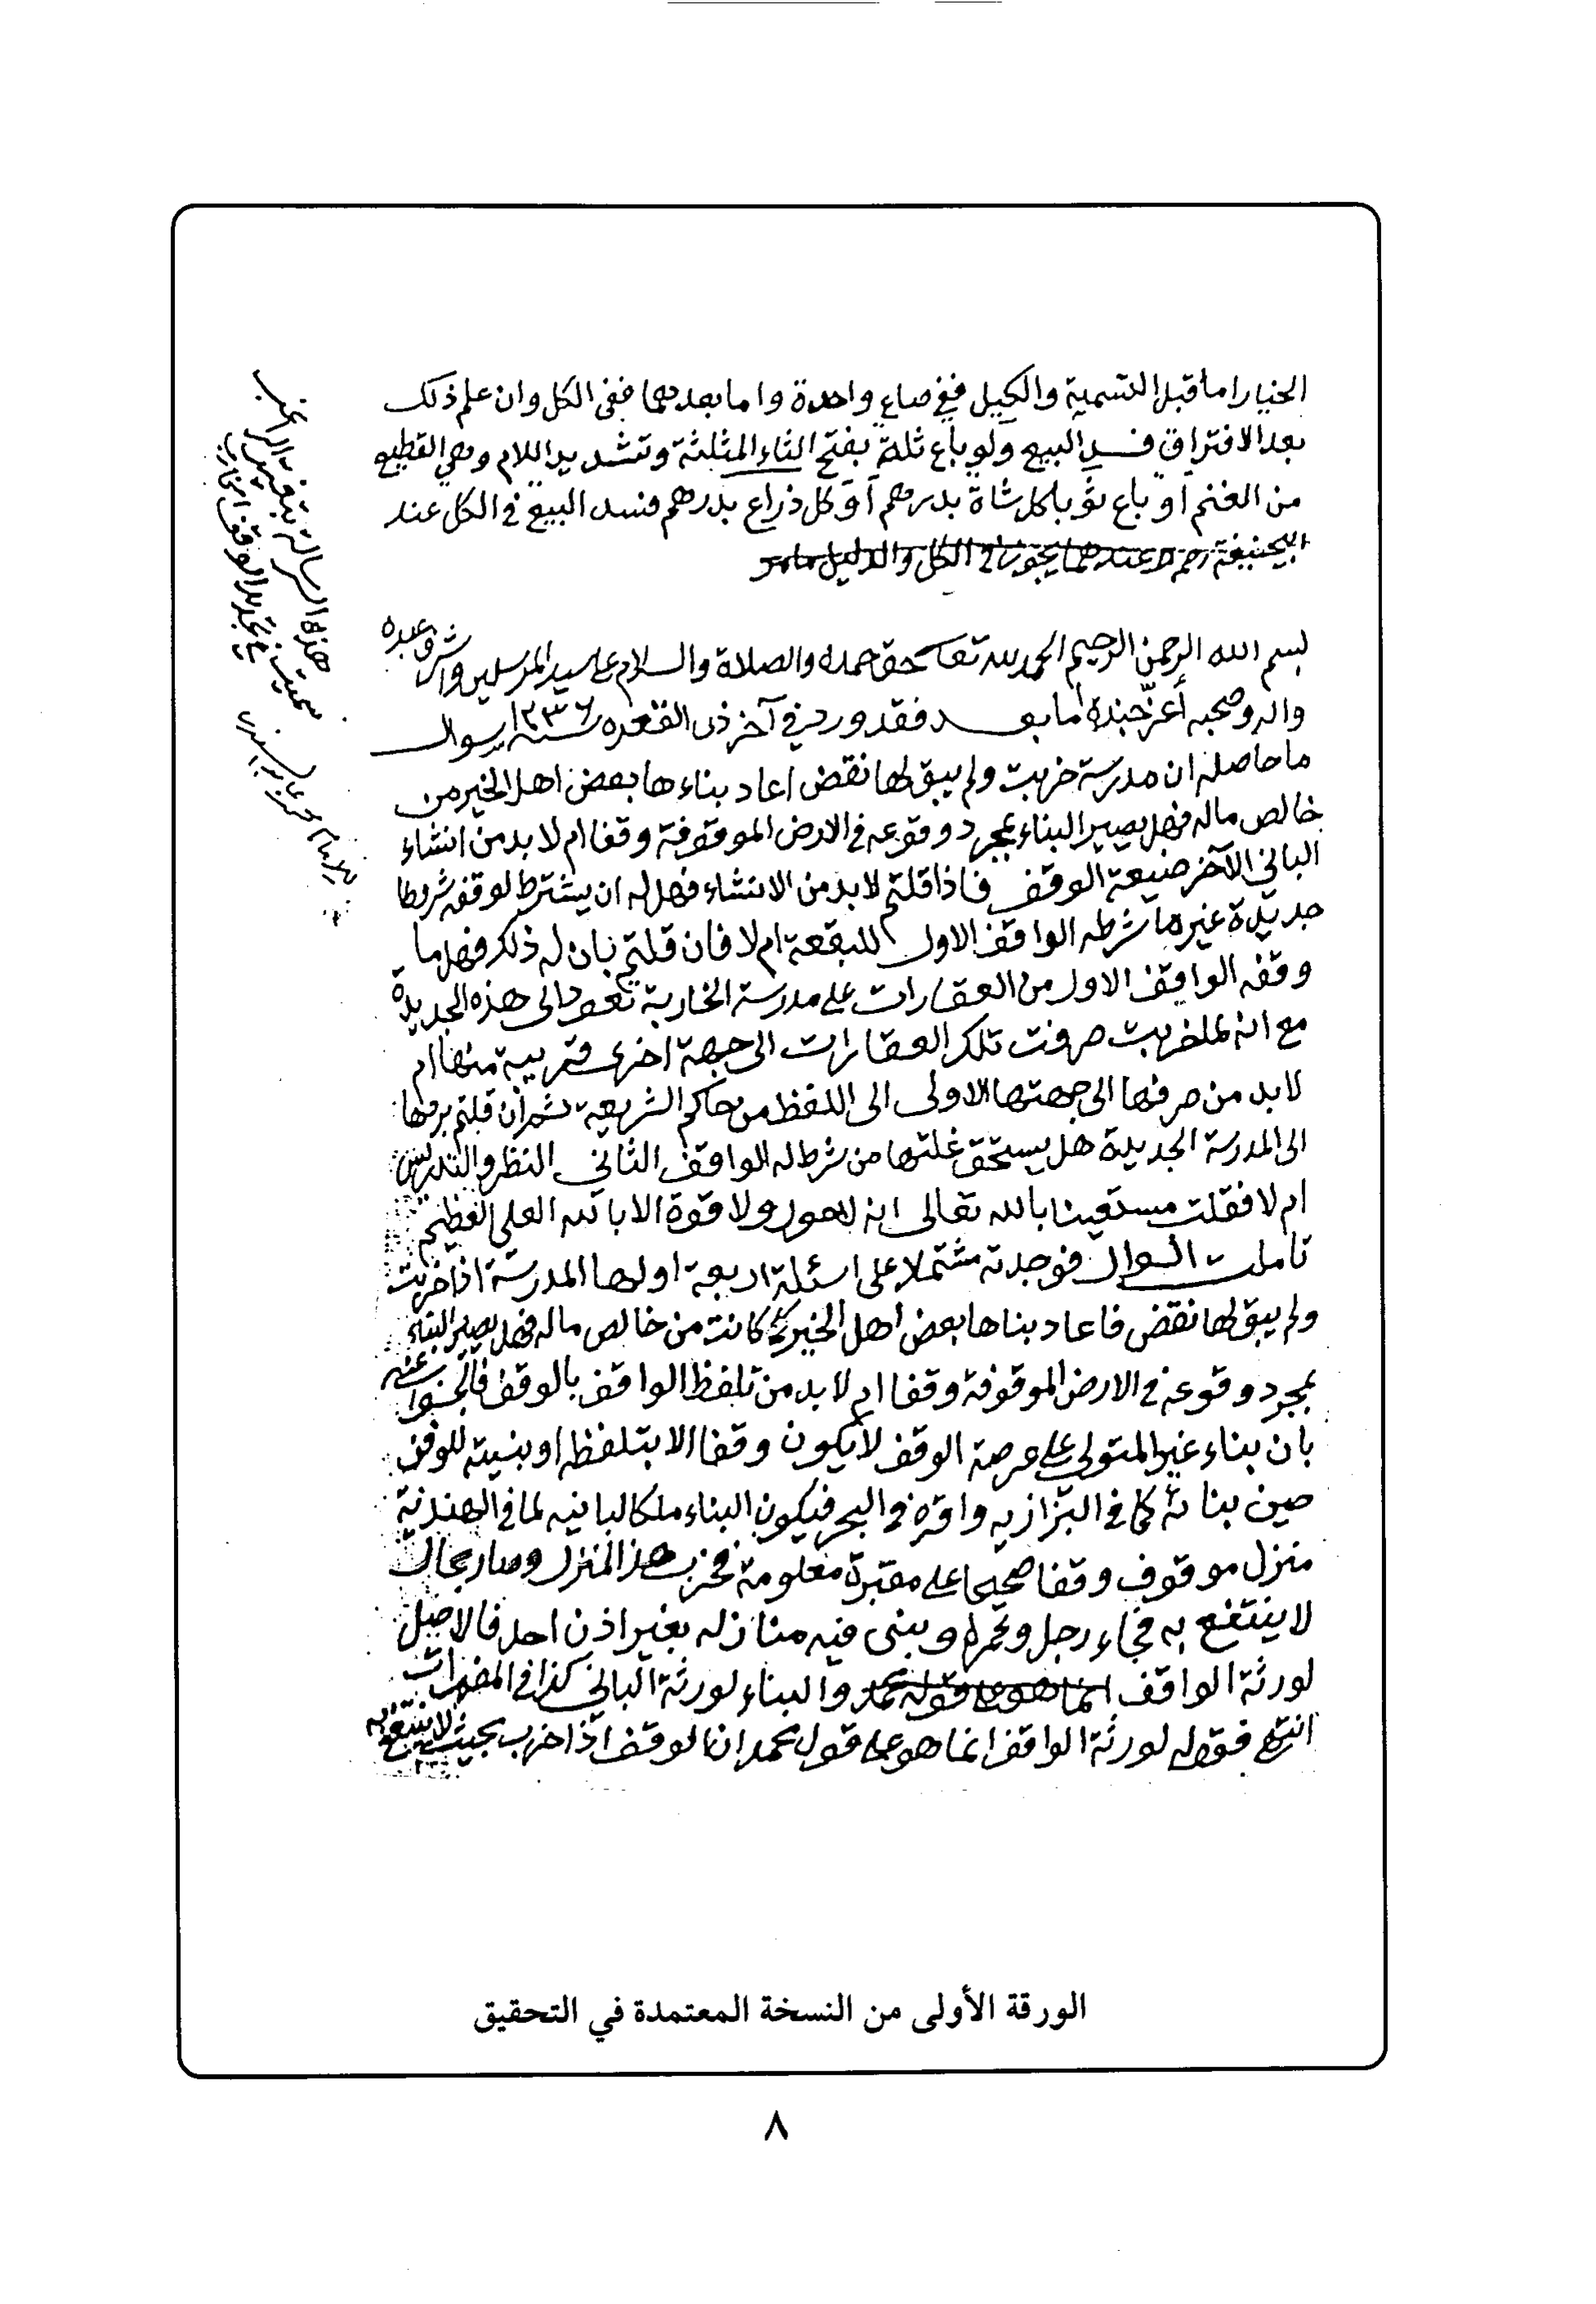 الخيار اما قبل التسمية والكيل ففي صاع واحدة واما بعدهما ففي الكل وان علم ذلك
بعد الافتراق فسد البيع ولو باع ثلة بفتح الثاء المثلثة وتشديد اللام وهي القطيع
من الغنم او باع ثوبا كل شاة بدرهم او كل ذراع بدرهم فسد البيع في الكل عند
ابيحنيفة رحمه وعندهما يجوز في الكل والدليل مامر
بسم الله الرحمن الرحيم الحمد لله تعالى حق حمده والصلاة والسلام على سيد المرسلين واشرف عبده
واله وصحبه أعز جنده اما بعد فقد ورد في آخر ذى القعده سنة ١٢٣٦ سوال
ما حاصله ان مدرسة خربت ولم يبق لها نقض اعاد بناءها بعض اهل الخير من
خالص ماله فهل يصير البناء بمجرد وقوعه في الارض الموقوفة وقفا ام لا بد من انشاء
الباني الآخر صنيعة الوقف فاذا قلتم لا بد من الانشاء فهل له ان يشترط لوقفه شروطا
جديدة غير ما شرطه الواقف الاول للبقعة ام لا فان قلتم بان له ذلك فهل ما
وقفه الواقف الاول من العقارات على مدرسة الخاربة تعود الى هذه الجديدة
مع انه لما خربت صرفت تلك العقارات الى جهة اخرى قريبة منها ام
لا بد من صرفها الى جهتها الاولى الى اللفظ من حاكم الشريعة ثم ان قلتم برمها
الى المدرسة الجديدة هل يستحق غلتها من شرط له الواقف الثاني النظر والتدريس
ام لا فقلت مستعينا بالله تعالى انه لا حول ولا قوة الا بالله العلي العظيم
تاملت السوال فوجدته مشتملا على اسئلة اربعة اولها المدرسة اذا خربت
ولم يبق لها نقض فاعاد بناها بعض اهل الخير كانت من خالص ماله فهل يصير البناء
بمجرد وقوعه في الارض الموقوفة وقفا ام لا بد من تلفظ الواقف بالوقف فالجواب عنه
بان بناء غير المتولي على عرصة الوقف لا يكون وقفا الا بتلفظه او بنيته للوقف
حين بنائه كما في البزازيه واقره في البحر فيكون البناء ملكا لبانيه لما في الهندية
منزل موقوف وقفا صحيحا على مقبرة معلومة فخرب هذا المنزل وصار بحال
لا ينتفع به فجاء رجل وعمره وبنى فيه منازله بغير اذن احد فالاصل
لورثة الواقف انما هو على قوله محمد والبناء لورثة الباني كذا في المضمرات
انتهى فقوله لورثة الواقف انما هو على قول محمد ان الوقف اذا خرب بحيث لا ينتفع به
هذه الرسالة
سميت
محمد عابد السندي
الورقة الأولى من النسخة المعتمدة في التحقيق
٨